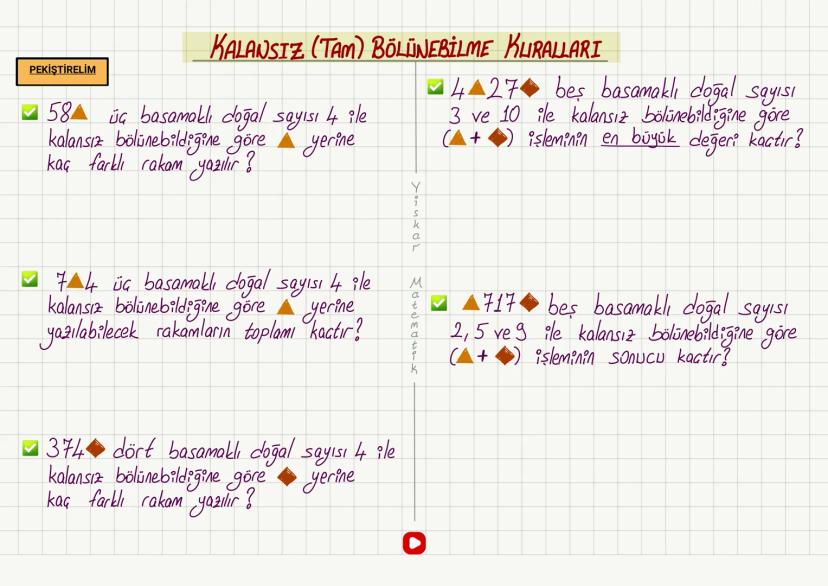 KALANSIZ (TAM) BÖLÜNEBİLME KURALLARI
PEKİŞTİRELİM
58 üç basamaklı doğal sayısı 4 ile
kalansız bölünebildiğine göre yerine
kaç farklı rakam yazılır?
7 4 üç basamaklı doğal sayısı 4 ile
kalansız bölünebildiğine göre yerine
yazılabilecek rakamların toplamı kaçtır?
374 dört basamaklı doğal sayısı 4 ile
kalansız bölünebildiğine göre yerine
kaç farklı rakam yazılır?
Yiskar Matematik
4 27 beş basamaklı doğal sayısı
3 ve 10 ile kalansız bölünebildiğine göre
( + ) işleminin en büyük değeri kaçtır?
717 beş basamaklı doğal sayısı
2, 5 ve 9 ile kalansız bölünebildiğine göre
( + ) işleminin sonucu kaçtır?